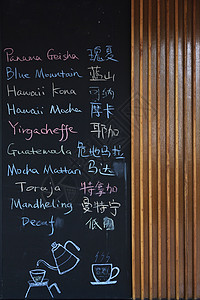 Panama Geisha 瑰夏
Blue Mountain 蓝山
Hawaii Kona 可纳
Hawaii Mocha 摩卡
Yirgacheffe 耶加
Guatemala 危地马拉
Mocha Mattari 马达
Toraja 特拿加
Mandheling 曼特宁
Decaf 低因